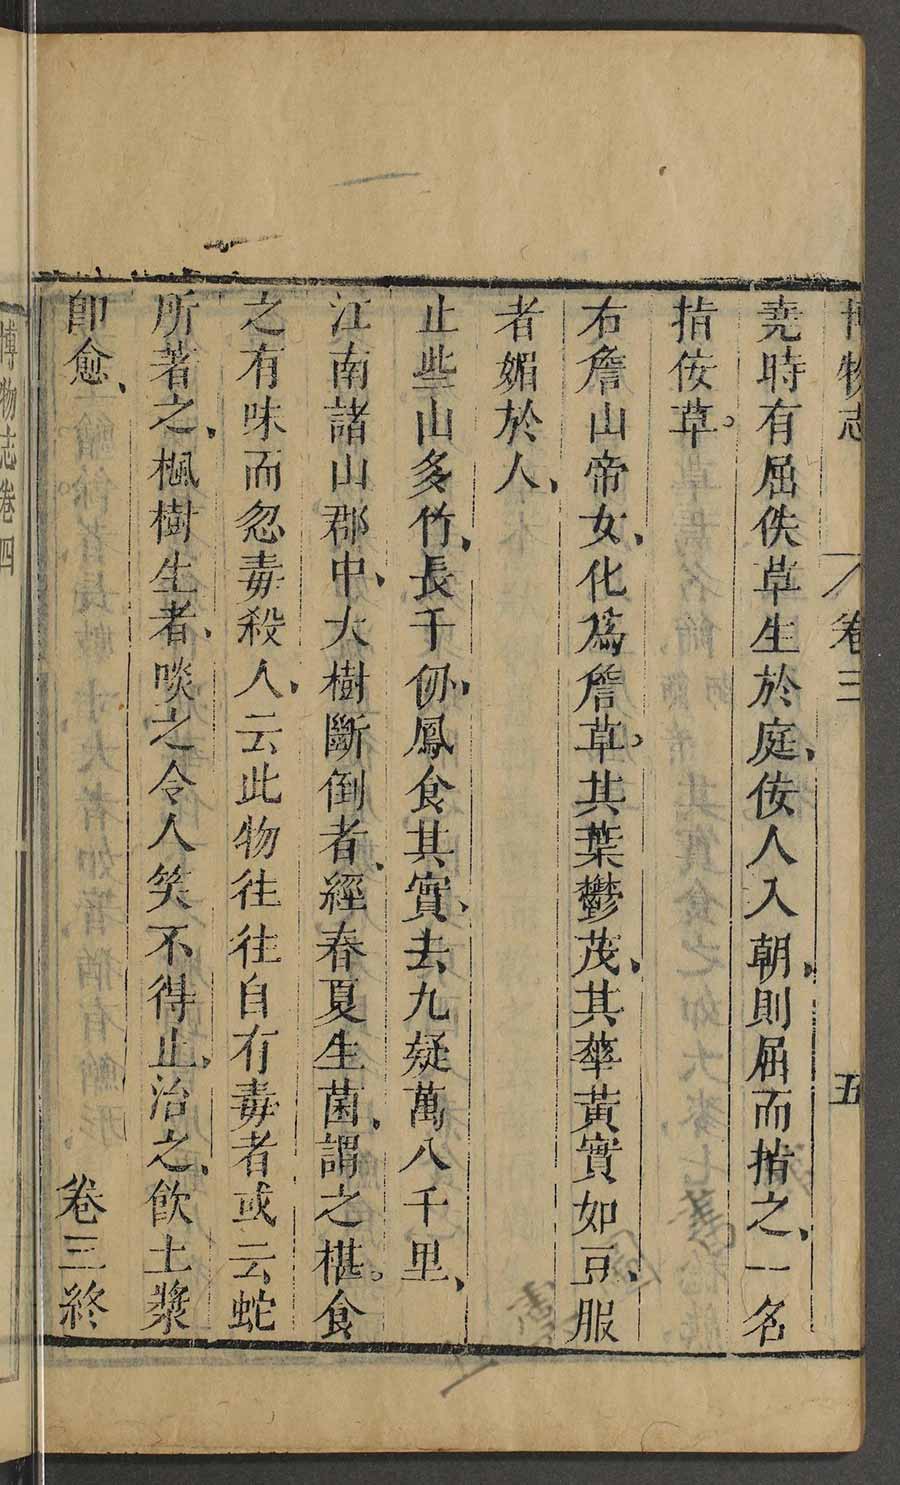 博物志 卷三 五
堯時有屈佚草生於庭、佞人入朝、則屈而指之、一名
指佞草。
右詹山帝女、化爲詹草。其葉鬱茂、其華黃實如豆、服
者媚於人、
止些山多竹、長千仞、鳳食其實、去九疑萬八千里、
江南諸山郡中、大樹斷倒者、經春夏生菌、謂之椹。食
之有味而忽毒殺人、云此物往往自有毒者或云蛇
所著之、楓樹生者、啖之令人笑不得止、治之、飲土漿
卽愈、 卷三終
博物志卷四